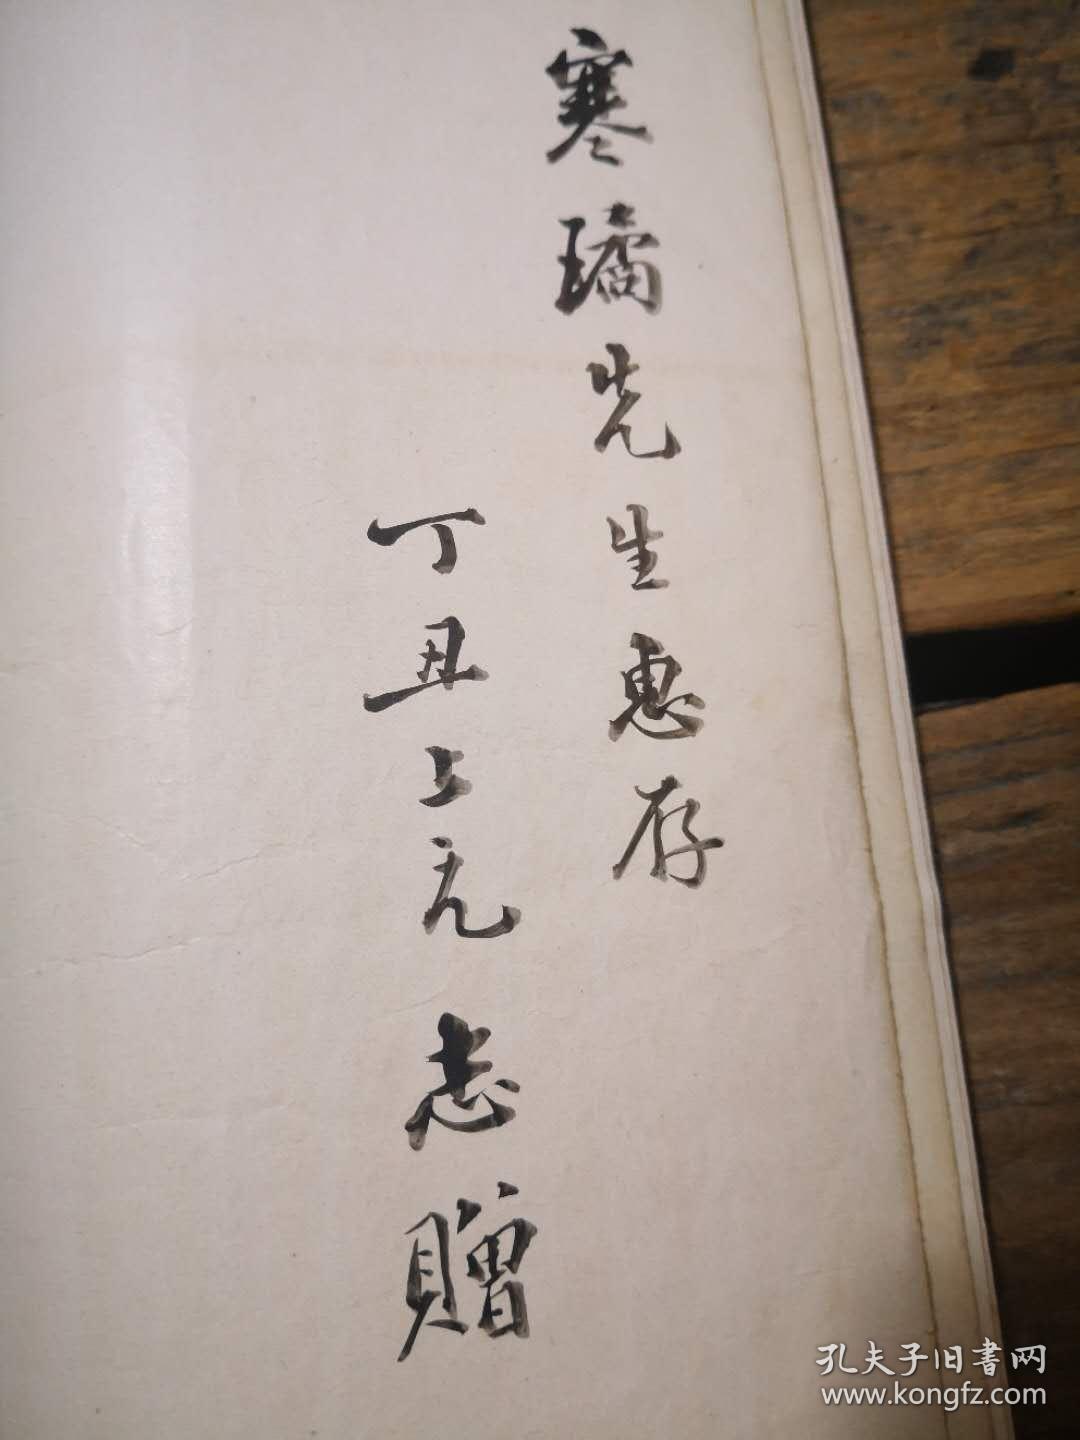 寒璚先生惠存
丁丑上元志贈
孔夫子旧書网
www.kongfz.com